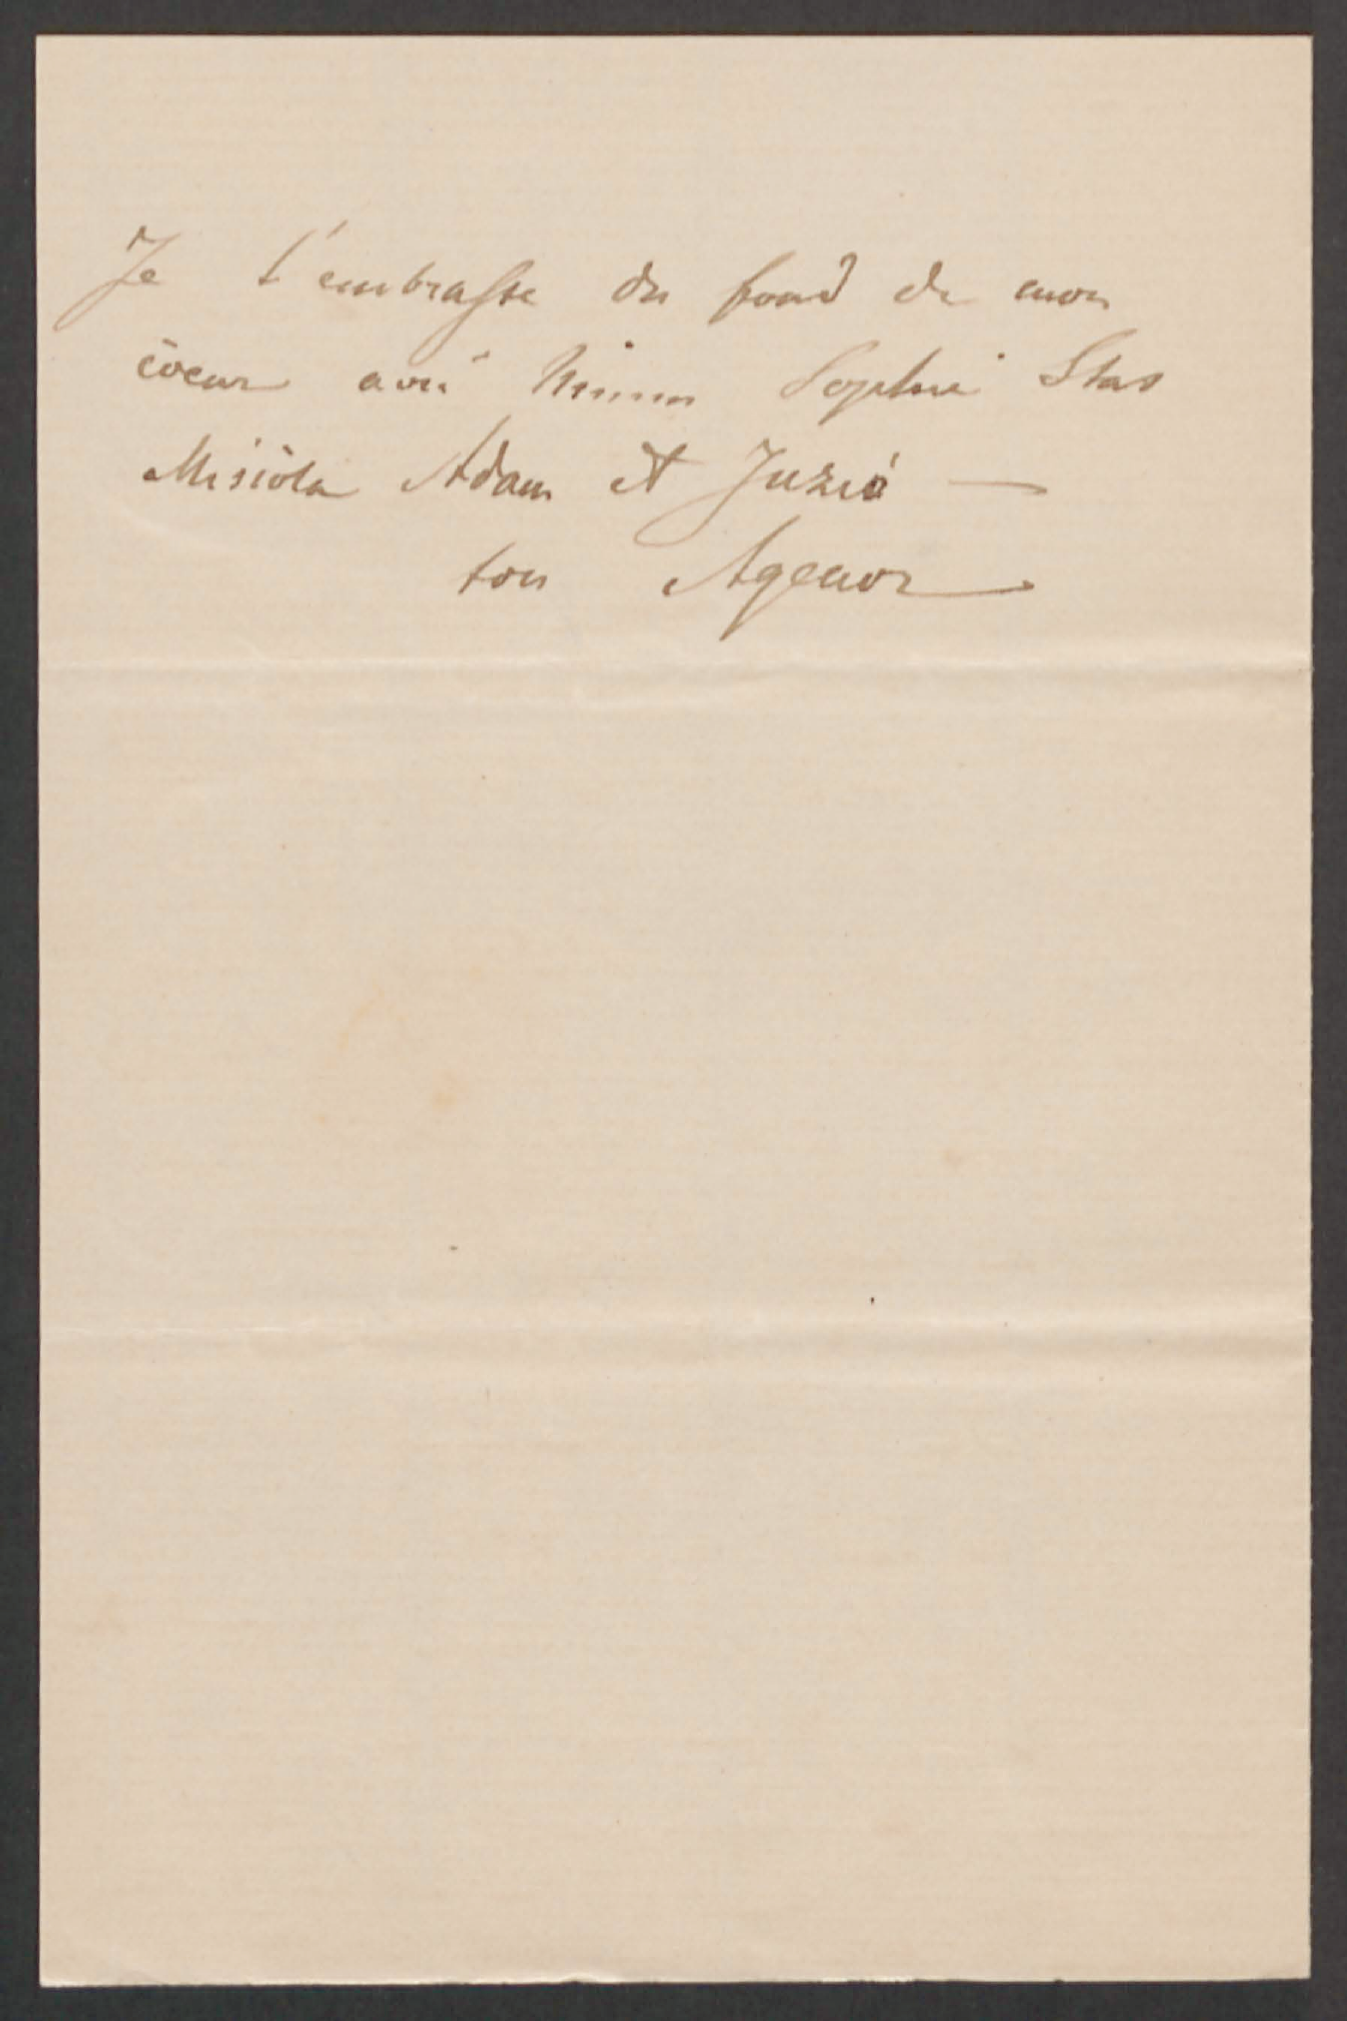 Je t'embrasse du fond de mon
coeur avec Sophie Stas
Misiola Adam et Juziá —
ton Agenor